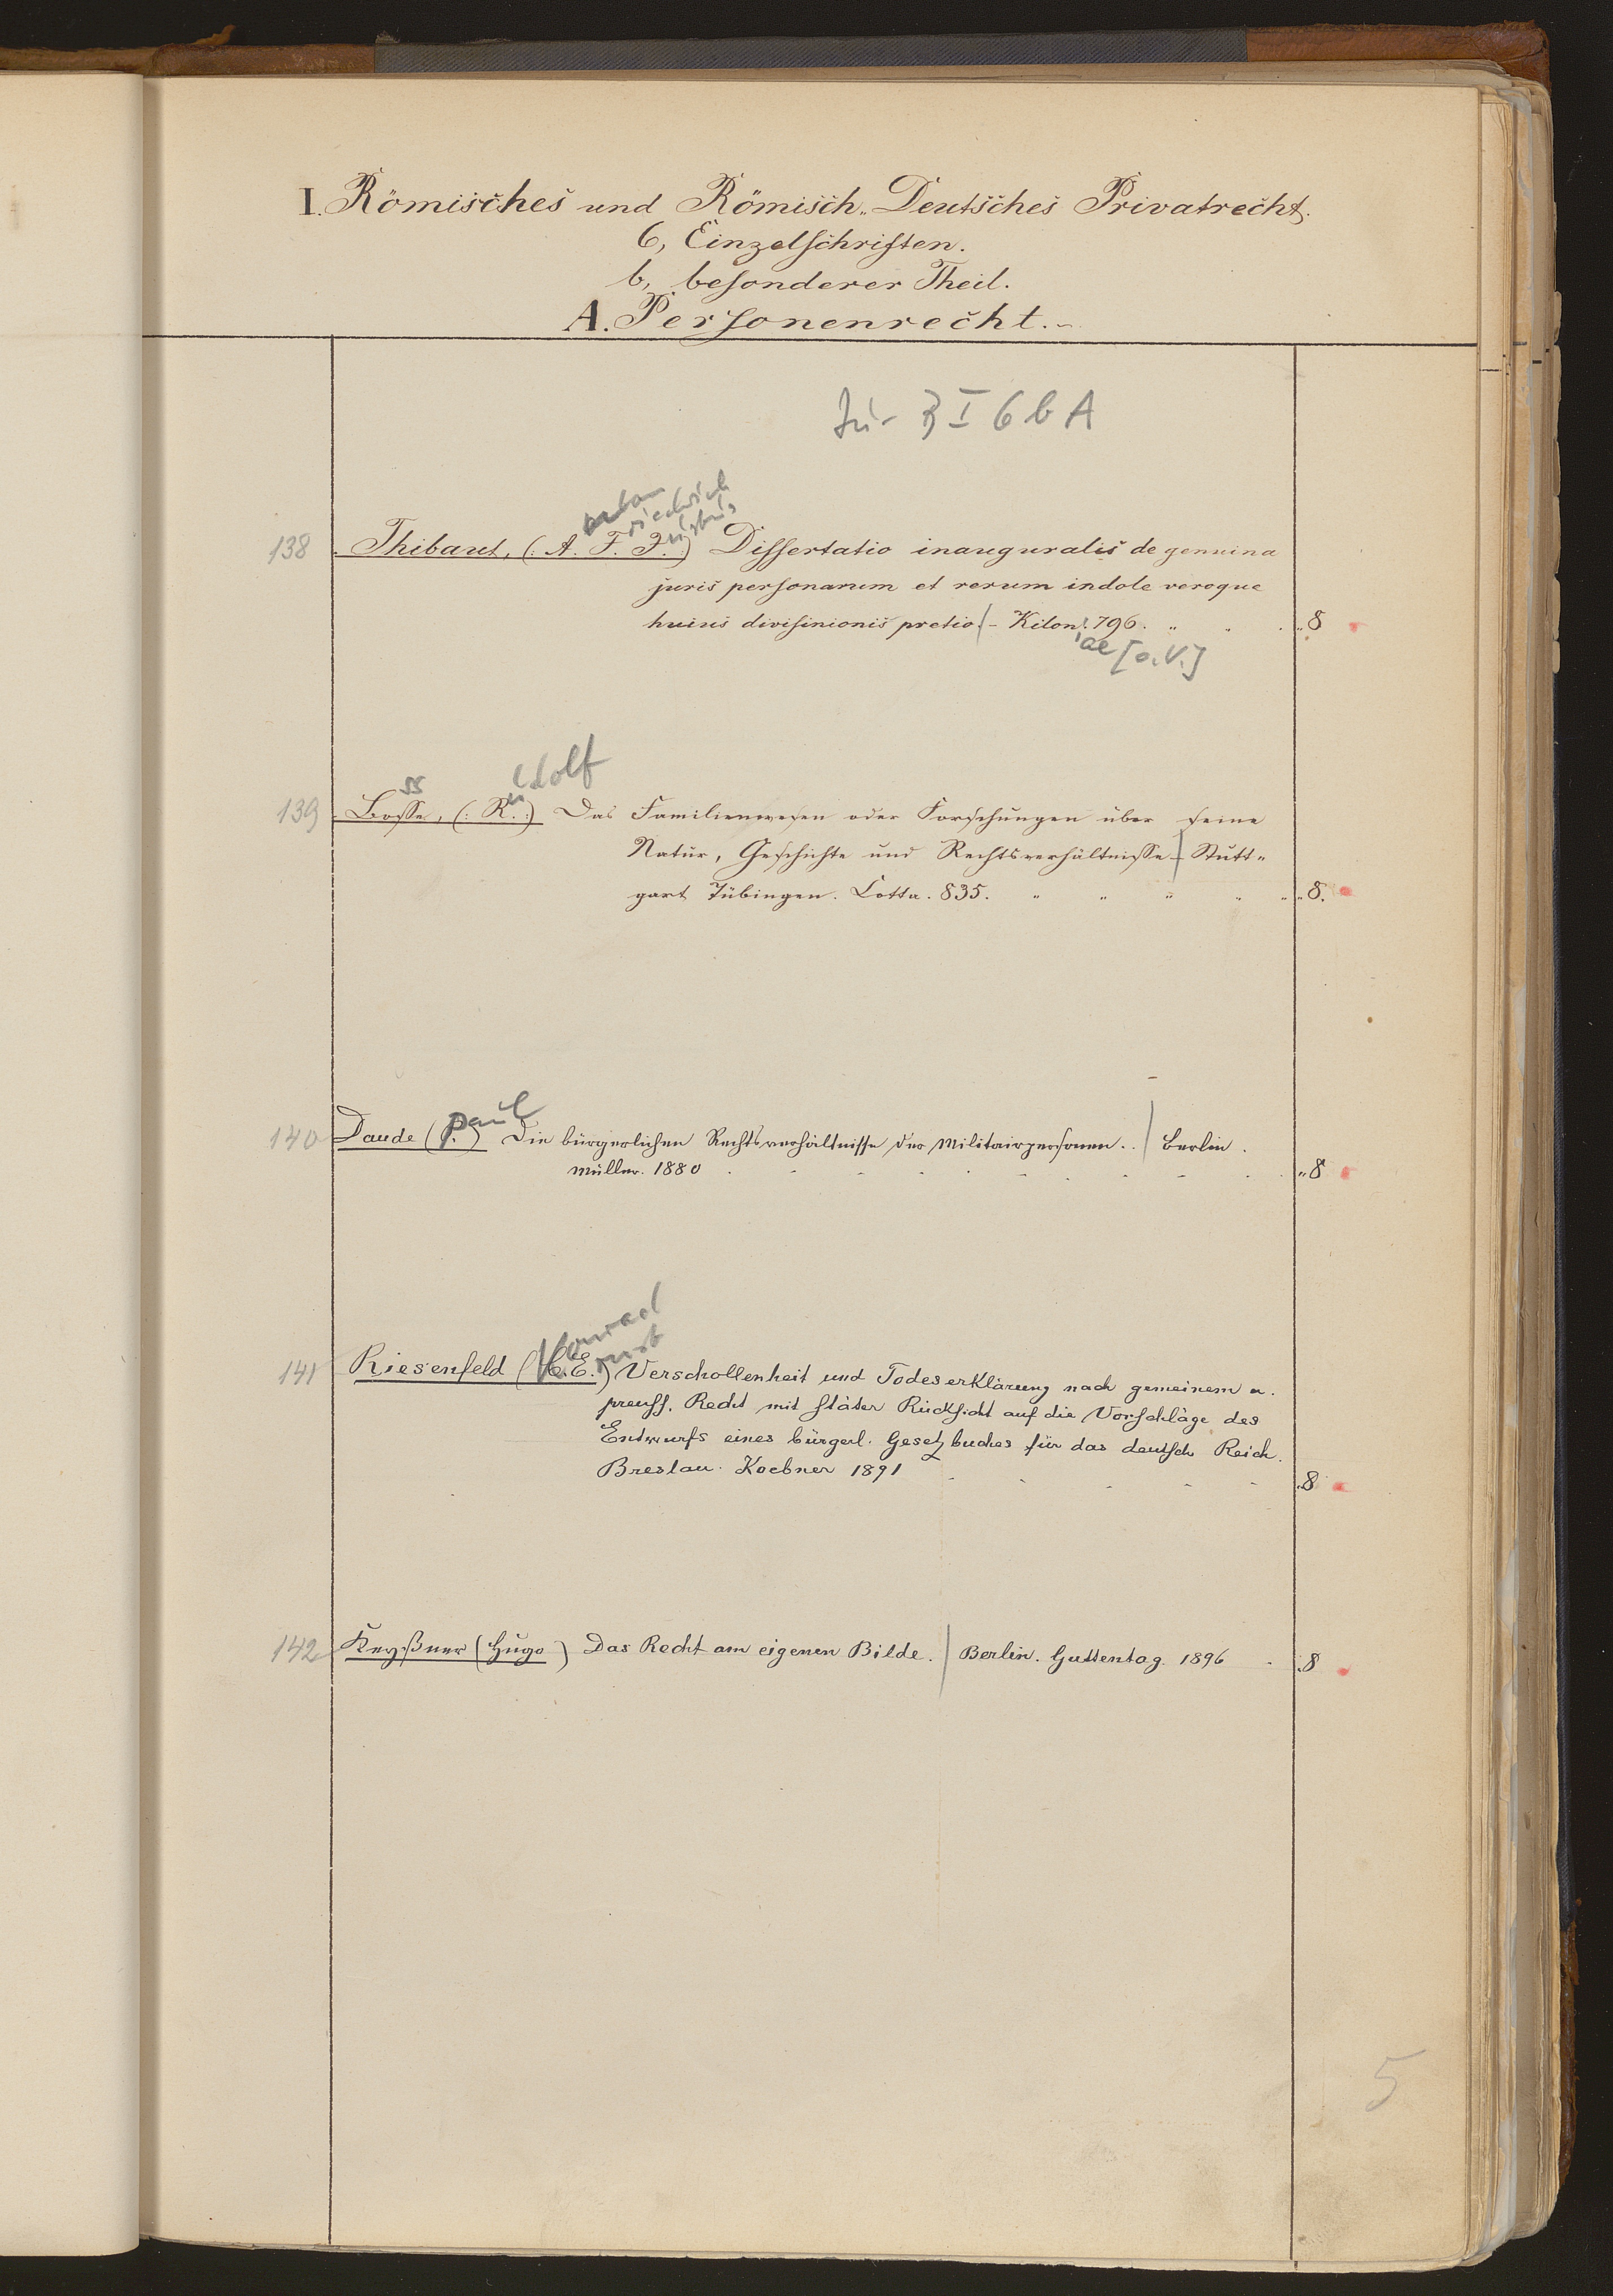 I. Römisches und Römisch-Deutsches Privatrecht.
6, Einzelschriften.
b, besonderer Theil.
A. Personenrecht.
Jur B I 6 b A
138 Thibaut, (: A. F. J. :) Dissertatio inauguralis de genuina
juris personarum et rerum indole veroque
huius divisinionis pretio. - Kilon. 796. " " . "8
iae [o. V.]
139 Bosse, (: Rudolf :) Das Familienwesen oder Forschungen über seine
ss
Natur, Geschichte und Rechtsverhältnisse - Stutt-
gart Tübingen. Cotta. 835. " " " " " "8.
140 Daude (Paul) Die bürgerlichen Rechtsverhältnisse der Militairpersonen. . Berlin.
Müller. 1880 "8
141 Riesenfeld (C. E.) Verschollenheit und Todeserklärung nach gemeinem u.
Konrad
Ernst
preuss. Recht mit stäter Rücksicht auf die Vorschläge des
Entwurfs eines bürgerl. Gesetzbuches für das deutsch Reich.
Breslau. Koebner 1891 "8
142 Keyßner (Hugo) Das Recht am eigenen Bilde. Berlin. Guttentag. 1896 . "8
5